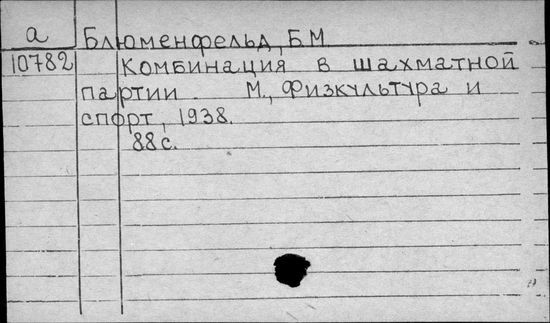 а
Блюменфельд, Б.М
10782
Комбинация в шахматной
партии. М., Физкультура и
спорт, 1938.
88 с.